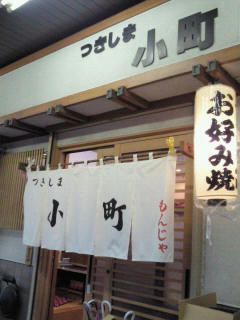 つきしま 小町
お好み焼
つきしま
小町
もんじゃ